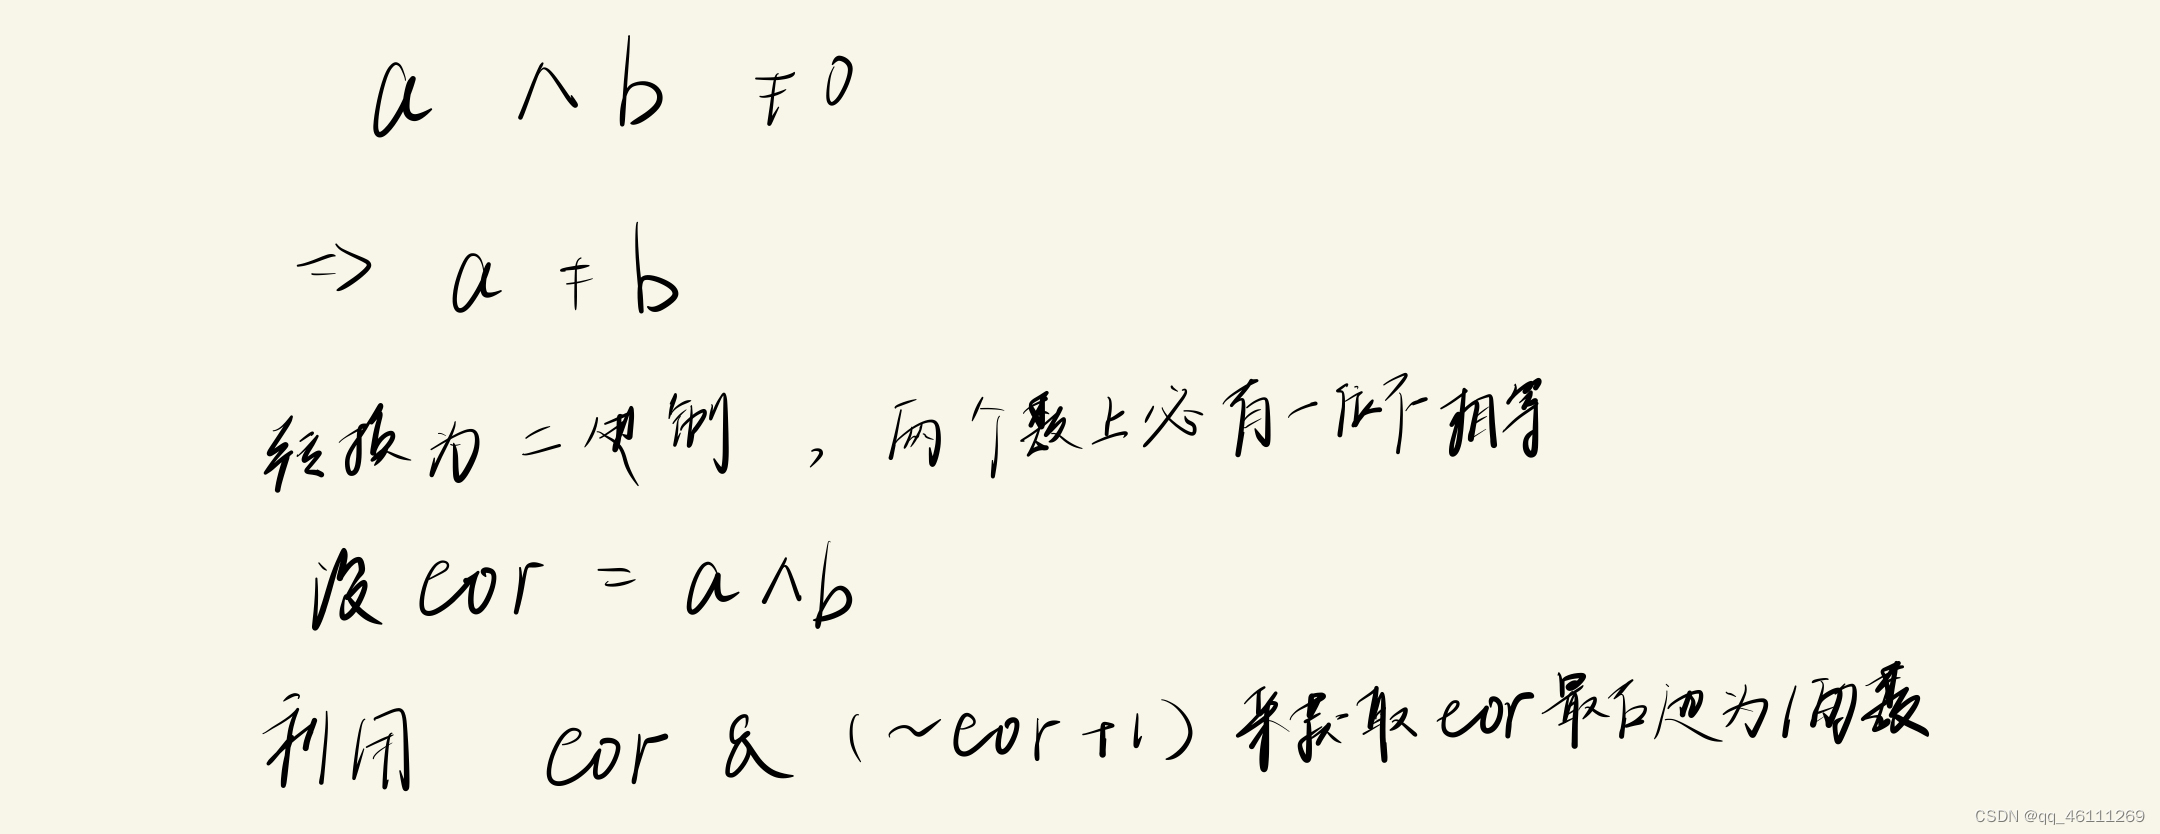 a ∧ b ≠ 0
⇒ a ≠ b
转换为二进制，两个数上必有一位不相等
设 eor = a ∧ b
利用 eor & (~eor+1) 来获取eor最右边为1的数
CSDN @qq_46111269